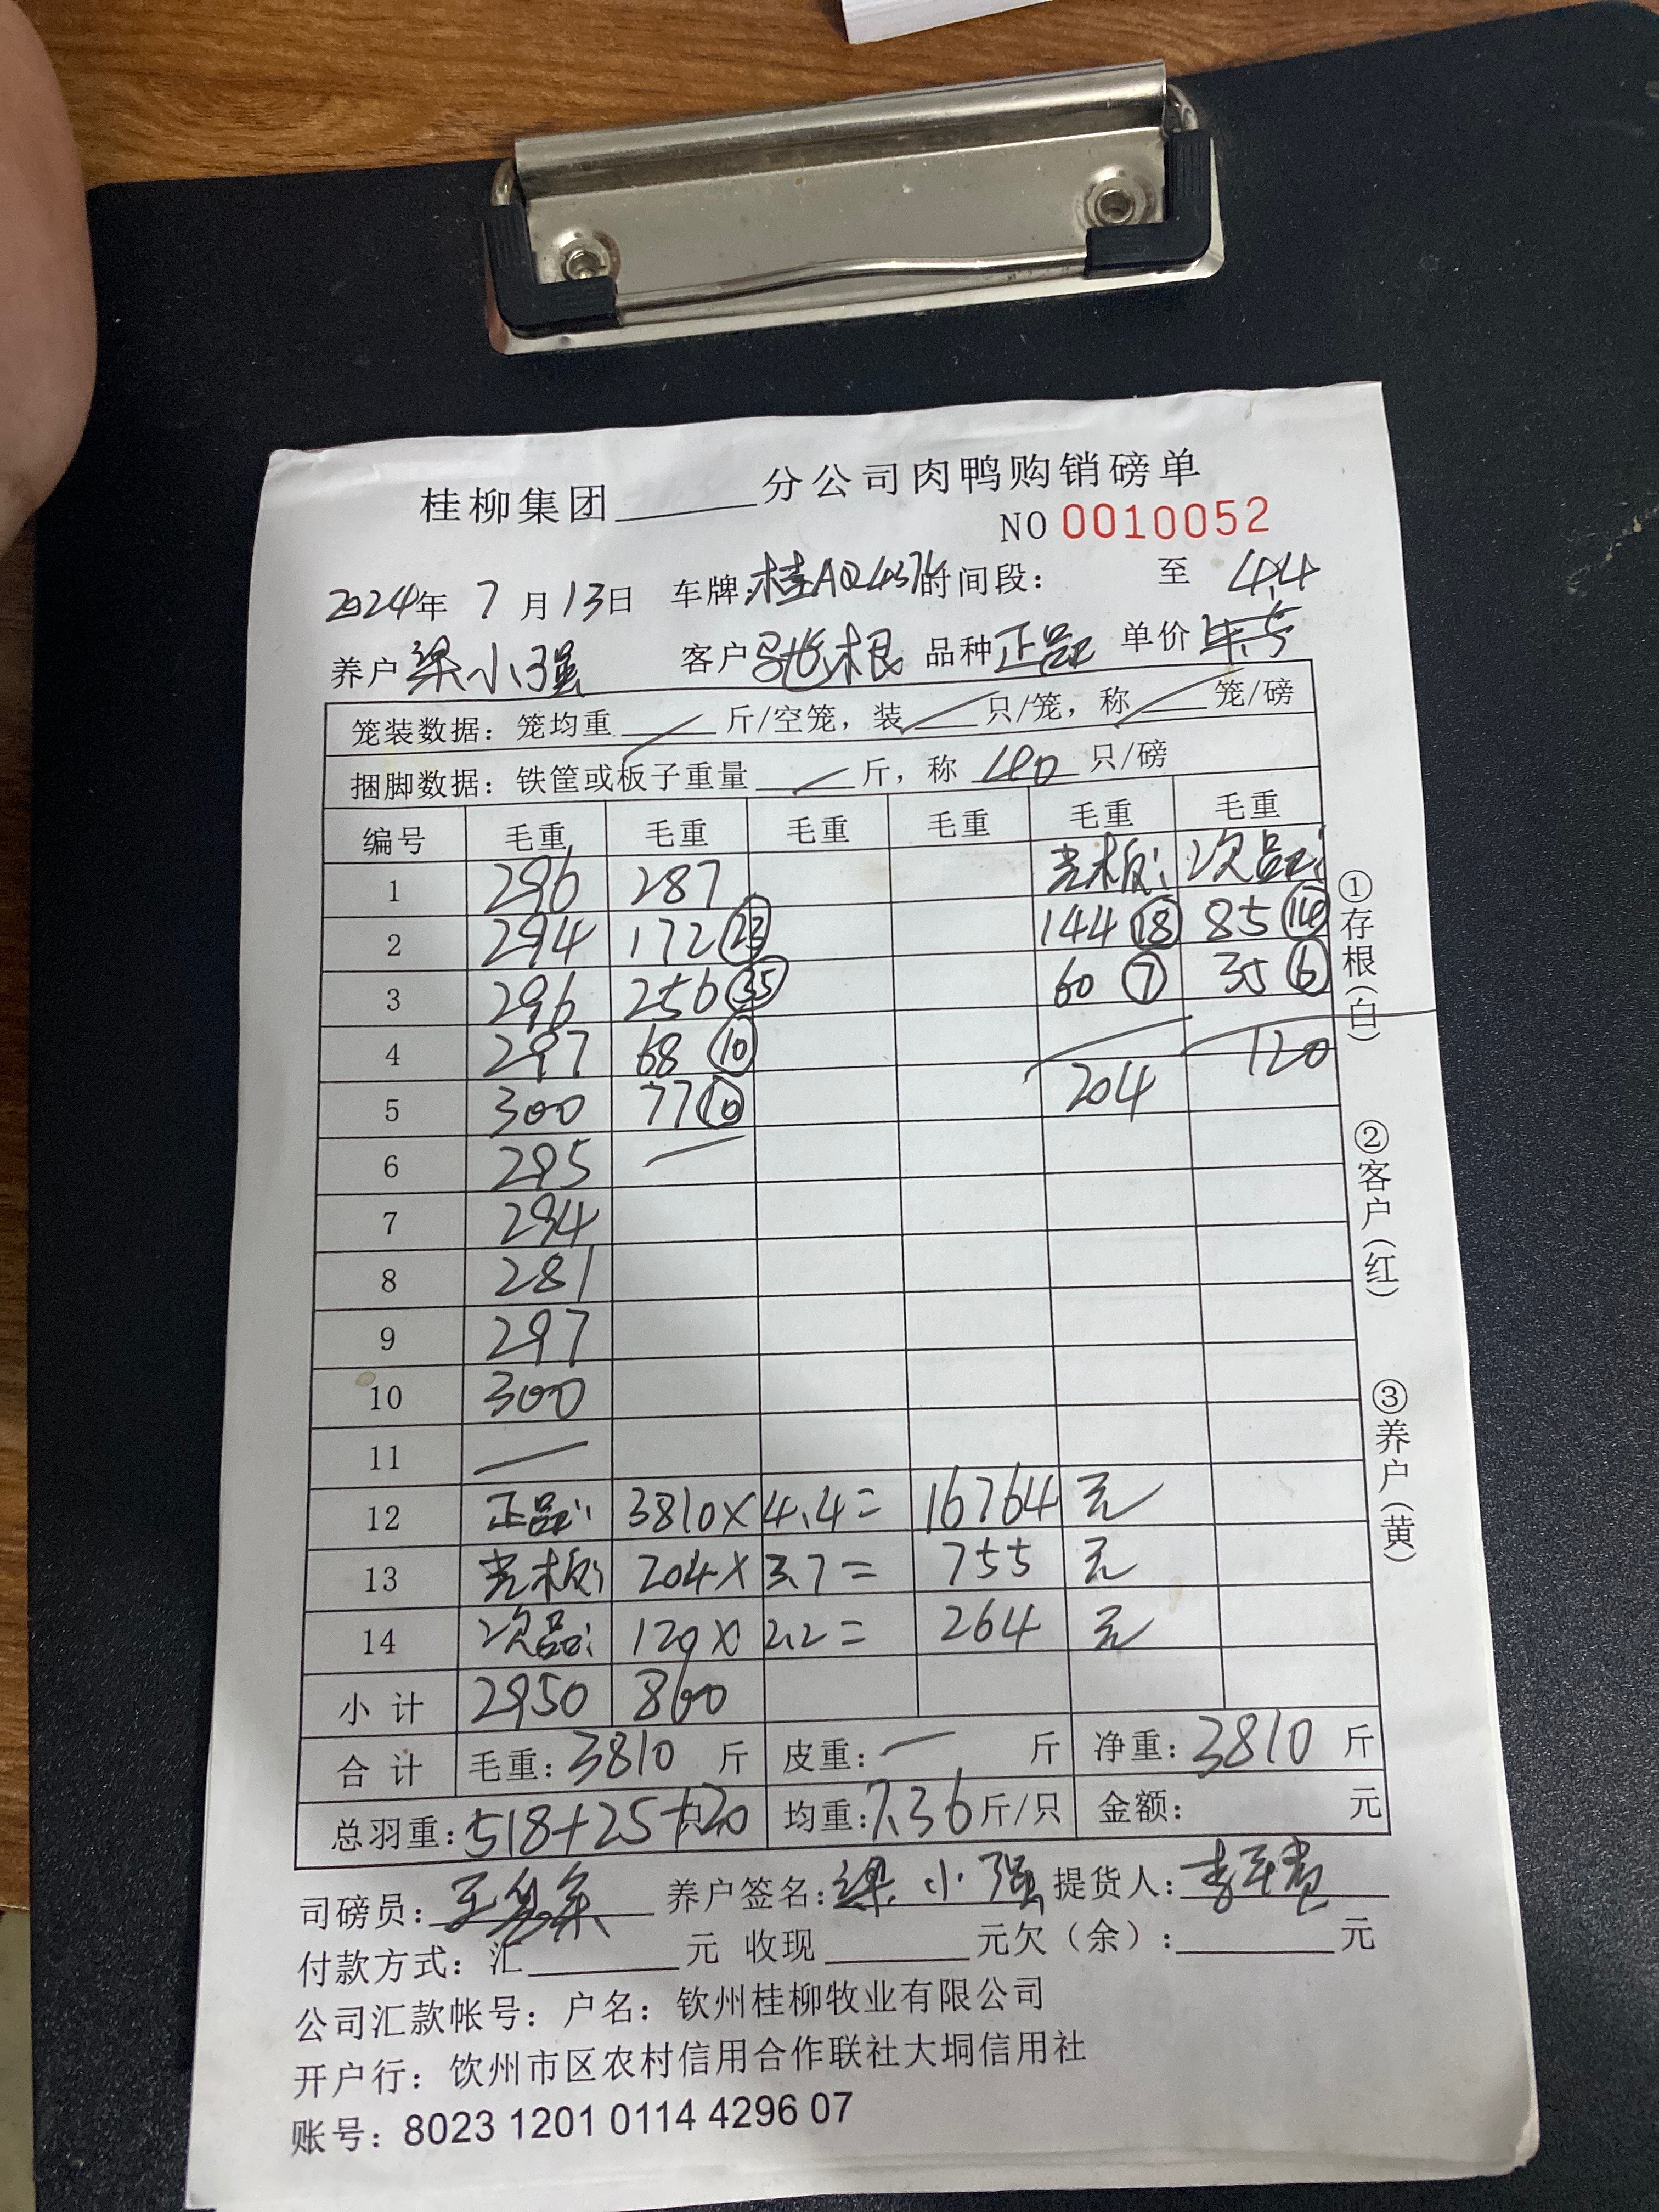 桂柳集团______分公司肉鸭购销磅单
NO 0010052
2024年 7 月 13日 车牌: 桂AQ437 时间段: 至 4.4
养户 梁小强 客户 驰根 品种 正品 单价
笼装数据: 笼均重 斤/空笼, 装 只/笼, 称 笼/磅
捆脚数据: 铁筐或板子重量 斤, 称 40 只/磅
编号 毛重 毛重 毛重 毛重 毛重 毛重
1 296 287 光板: 次品:
2 294 172 23 144 18 85 14
3 296 256 35 60 7 35 6
4 297 68 10 120
5 300 77 10 204
6 295 —
7 294
8 281
9 297
10 300
11 —
12 正品: 3810× 4.4= 16764 元
13 光板: 204× 3.7= 755 元
14 次品: 120× 2.2= 264 元
小计 2950 860
合计 毛重: 3810 斤 皮重: — 斤 净重: 3810 斤
总羽重: 518+25+20 只 均重: 7.36 斤/只 金额: 元
司磅员: 养户签名: 梁小强 提货人:
付款方式: 汇______元 收现______元欠(余):______元
公司汇款帐号: 户名: 钦州桂柳牧业有限公司
开户行: 钦州市区农村信用合作联社大垌信用社
账号: 8023 1201 0114 4296 07
①存根(白)
②客户(红)
③养户(黄)